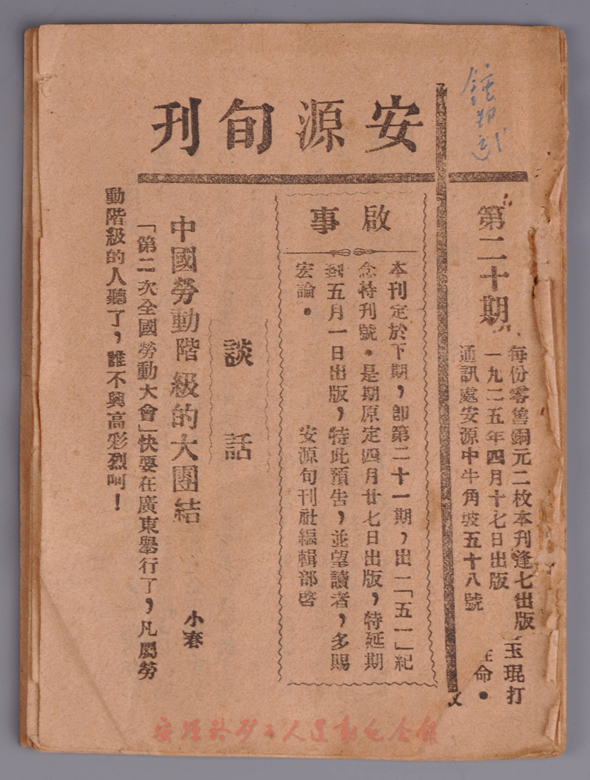 安源旬刊
第二十期
每份零售銅元二枚本刊逢七出版
一九二五年四月十七日出版
通訊處安源中牛角坡五十八號
玉琨打
命●
啟事
本刊定於下期，卽第二十一期，出一「五一」紀
念特刊號●是期原定四月廿七日出版，特延期
到五月一日出版，特此預告，並望讀者，多賜
宏論●
安源旬刊社編輯部啓
談話
中國勞動階級的大團結
小春
「第二次全國勞動大會」快要在廣東舉行了，凡屬勞
動階級的人聽了，誰不興高彩烈呵！
安源路矿工人运动纪念馆